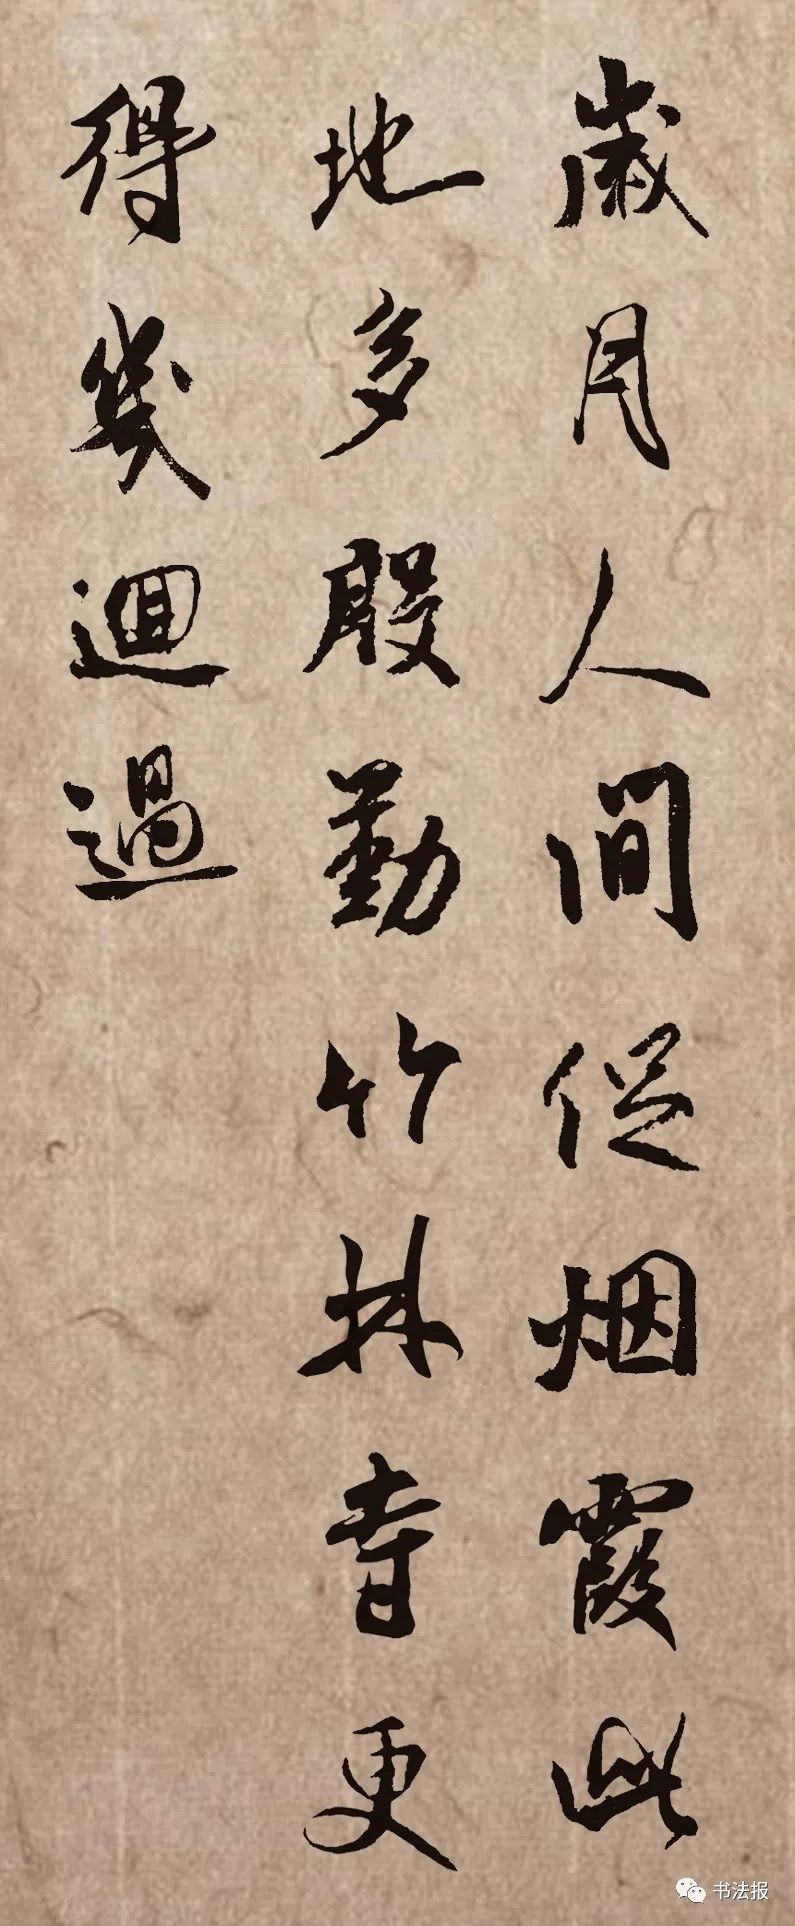 歲月人間促烟霞此
地多殷勤竹林寺更
得幾迴過
书法报